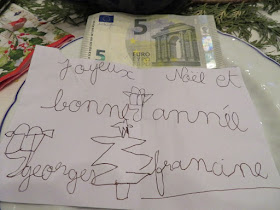 5 EURO
Joyeux Noël et
bonne année
georges francine